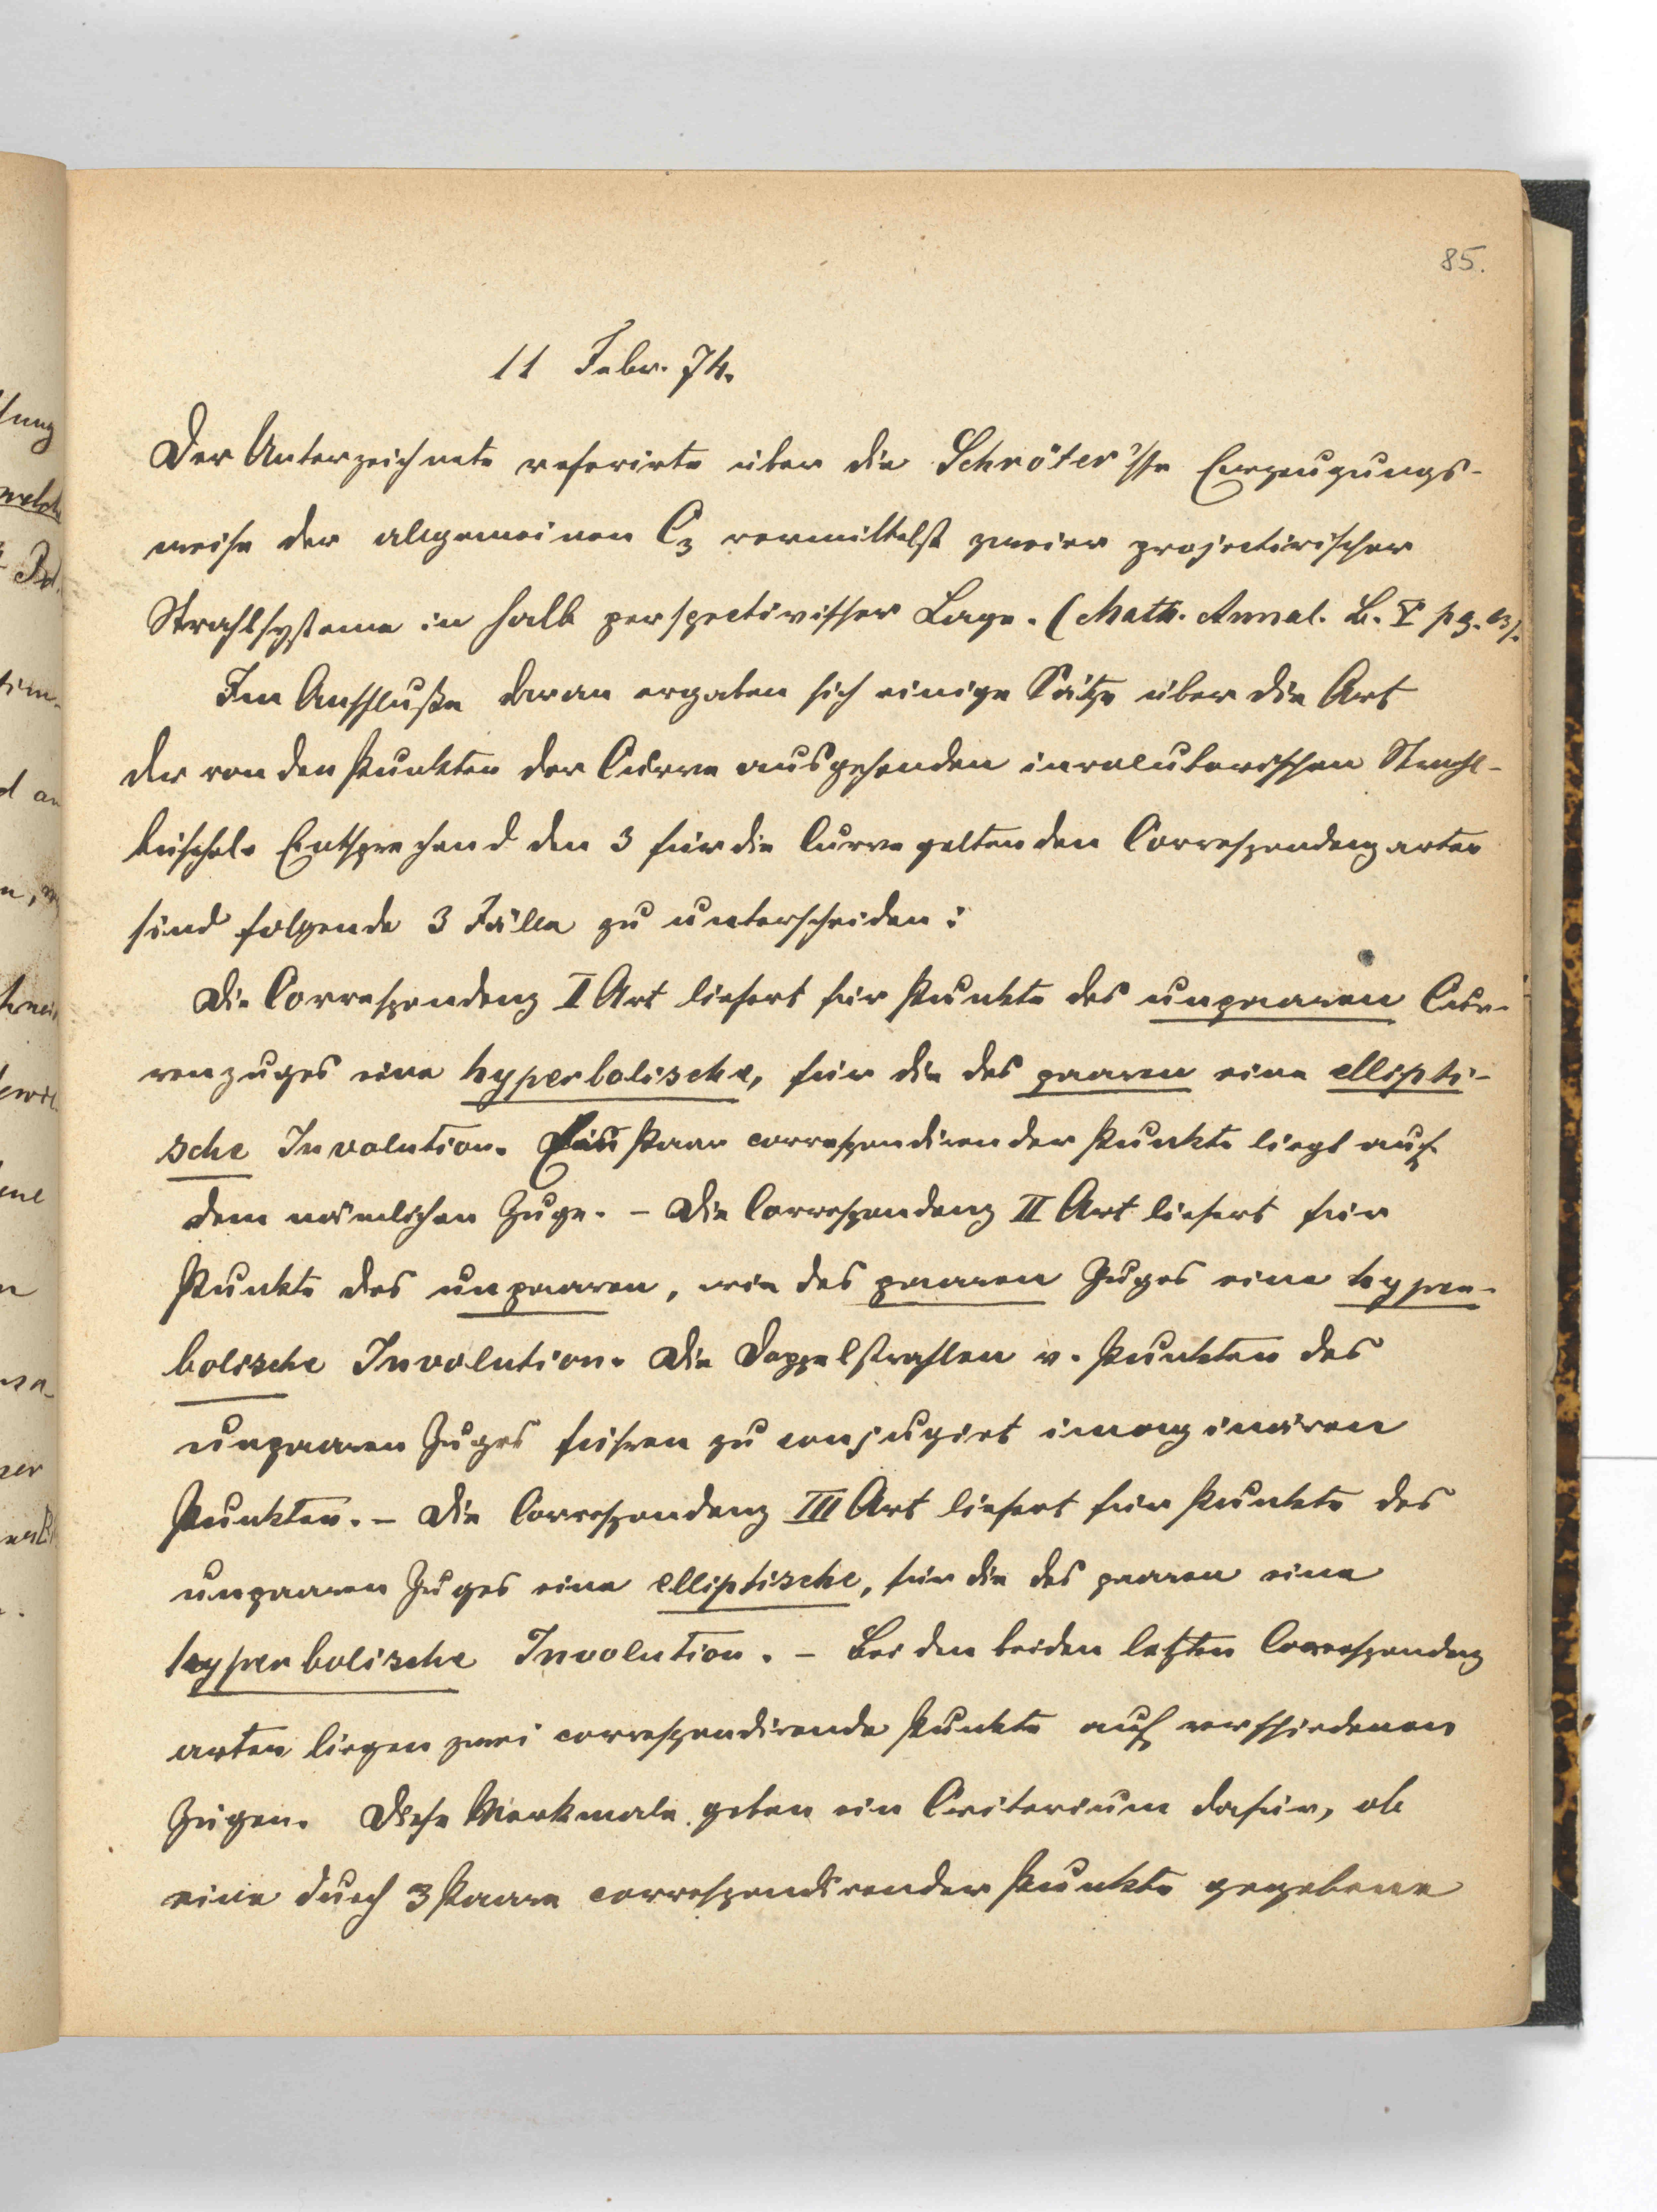 85.
11 Febr. 74.
Der Unterzeichnete referirte über die Schröter'sche Erzeugungs-
weise der allgemeinen C₃ vermittelst zweier projectivischer
Strahlsysteme in halb perspectivischer Lage. (Math. Annal. B. V pg.
Im Anschluße daran ergaben sich einige Sätze über die Art
der von den Punkten der Curve ausgehenden involutorischen Strahl-
büschel. Entsprechend den 3 für die Curve geltenden Correspondenzarten
sind folgende 3 Fälle zu unterscheiden:
Die Correspondenz I Art liefert für Punkte des unpaaren Cur-
venzuges eine hyperbolische, für die des paaren eine ellipti-
sche Involution. Ein Paar correspondirender Punkte liegt auf
dem nämlichen Zuge. - Die Correspondenz II Art liefert für
Punkte des unpaaren, wie des paaren Zuges eine hyper-
bolische Involution. Die Doppelstrahlen v. Punkten des
unpaaren Zuges führen zu conjugirt imaginären
Punkten. - Die Correspondenz III Art liefert für Punkte des
unpaaren Zuges eine elliptische, für die des paaren eine
hyperbolische Involution. - Bei den beiden letzten Correspondenz
arten liegen zwei correspondirende Punkte auf verschiedenen
Zügen. Diese Merkmale geben ein Criterium dafür, ob
eine durch 3 Paare correspondirender Punkte gegebene